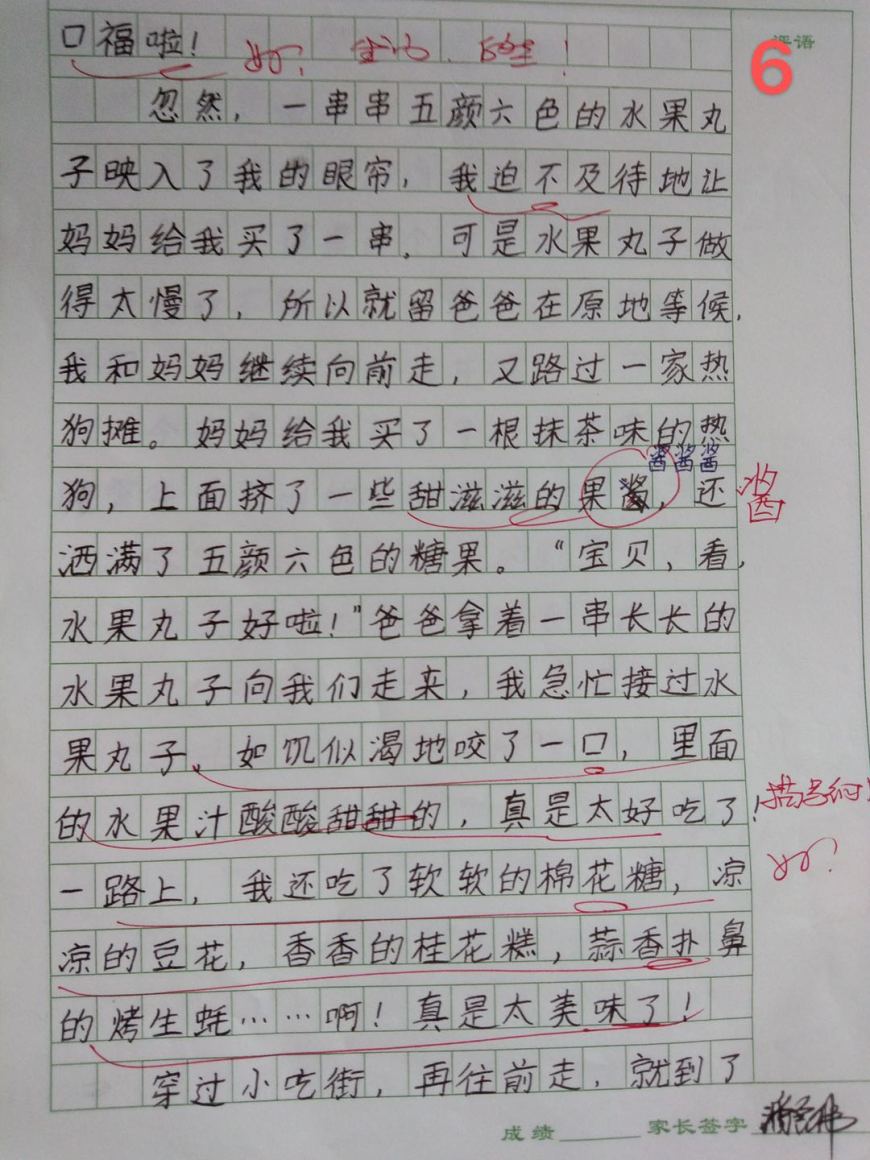 口福啦！
好！
评语
6
忽然，一串串五颜六色的水果丸
子映入了我的眼帘，我迫不及待地让
妈妈给我买了一串，可是水果丸子做
得太慢了，所以就留爸爸在原地等候，
我和妈妈继续向前走，又路过一家热
狗摊。妈妈给我买了一根抹茶味的热
酱酱酱
狗，上面挤了一些甜滋滋的果酱，还
酱
洒满了五颜六色的糖果。“宝贝，看，
水果丸子好啦！”爸爸拿着一串长长的
水果丸子向我们走来，我急忙接过水
果丸子，如饥似渴地咬了一口，里面
的水果汁酸酸甜甜的，真是太好吃了！
一路上，我还吃了软软的棉花糖，凉
好！
凉的豆花，香香的桂花糕，蒜香扑鼻
的烤生蚝……啊！真是太美味了！
穿过小吃街，再往前走，就到了
成绩 家长签字